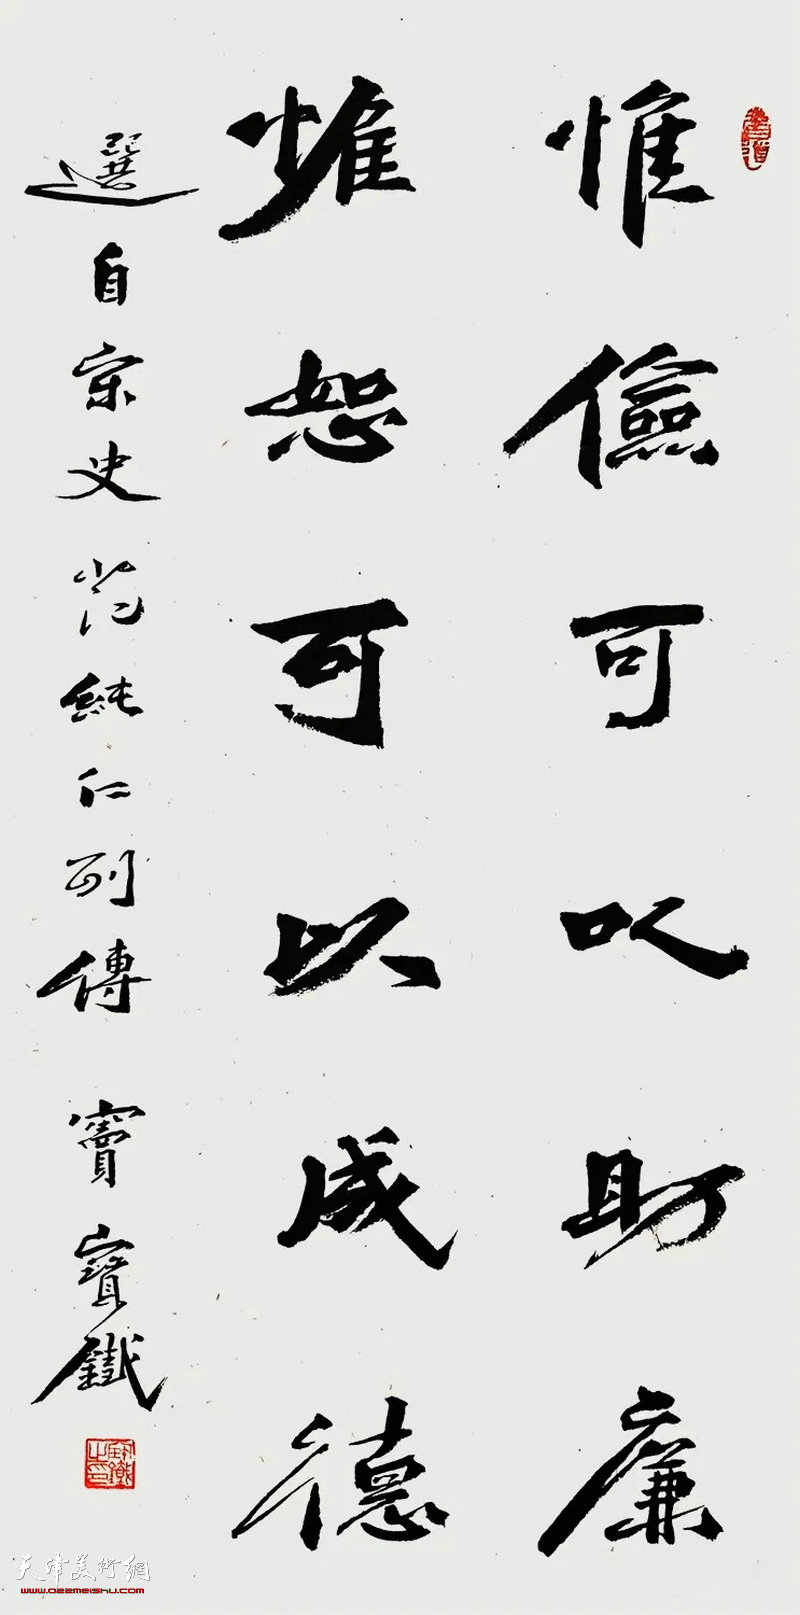 惟儉可以助廉
惟恕可以成德
選自宋史范純仁列傳 竇寶鐵
寶鐵之印
天津美術網
www.022meishu.com